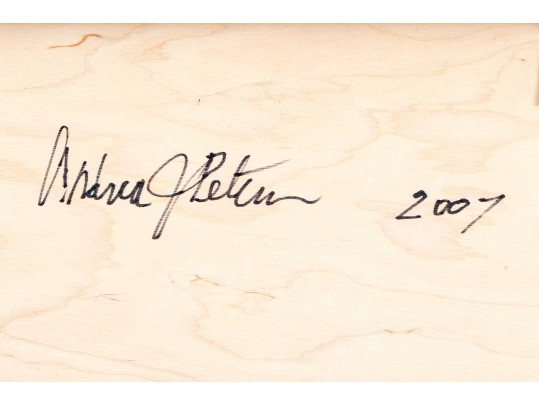 Andrea J Peterson 2007